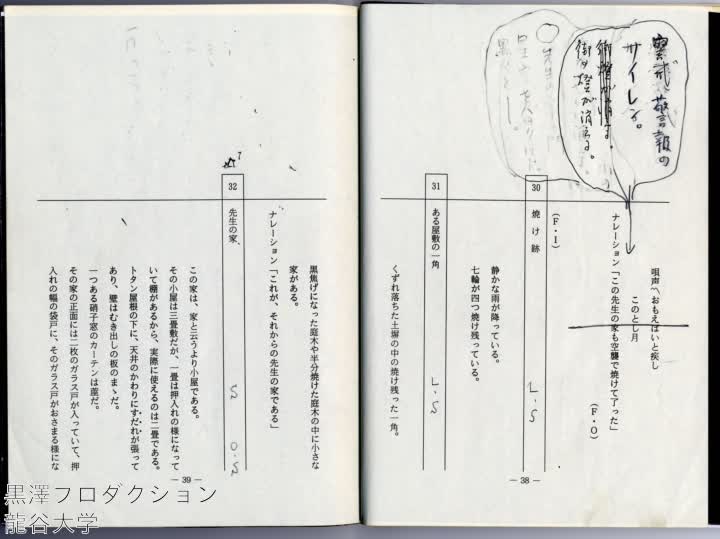 警戒警報の
サイレン。
御燈が消える。
唄声〽おもえばいと疾し
このとし月
ナレーション「この先生の家も空襲で焼けて了った」
(F・O)
(F・I)
30 焼け跡 L.S
静かな雨が降っている。
七輪が四つ焼け残っている。
31 ある屋敷の一角 L.S
くずれ落ちた土塀の中の焼け残った一角。
― 38 ―
黒焦げになった庭木や半分焼けた庭木の中に小さな
家がある。
ナレーション「これが、それからの先生の家である」
32 先生の家 S O.S
この家は、家と云うより小屋である。
その小屋は三畳敷だが、一畳は押入れの様になって
いて棚があるから、実際に使えるのは二畳である。
トタン屋根の下に、天井のかわりにすだれが張って
あり、壁はむき出しの板のまゝだ。
一つある硝子窓のカーテンは蓙だ。
その家の正面には二枚のガラス戸が入っていて、押
入れの幅の袋戸に、そのガラス戸がおさまる様にな
― 39 ―
黒澤プロダクション
龍谷大学